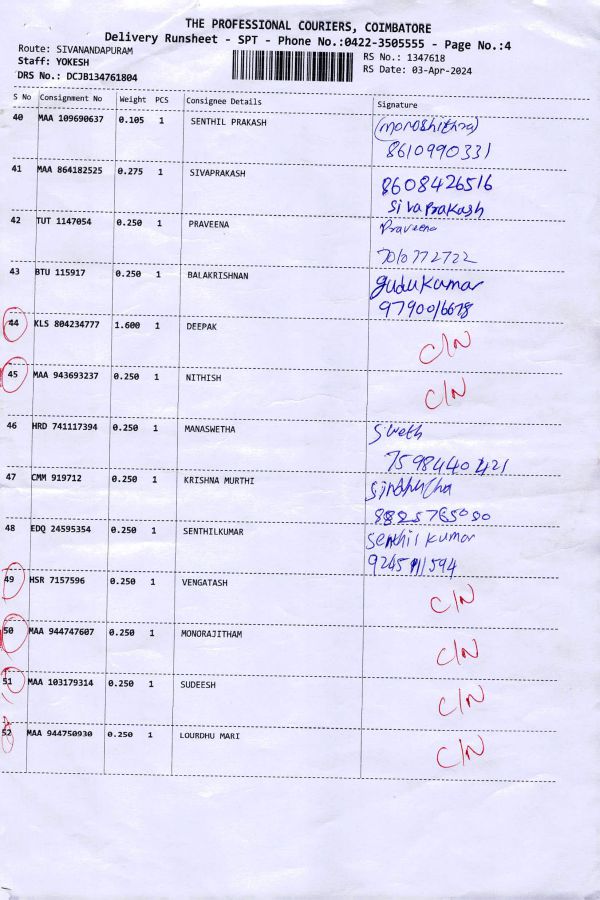 THE PROFESSIONAL COURIERS, COIMBATORE
Delivery Runsheet - SPT - Phone No.:0422-3505555 - Page No.:4
Route: SIVANANDAPURAM
RS No.: 1347618
Staff: YOKESH
RS Date: 03-Apr-2024
DRS No.: DCJB134761804
S No Consignment No Weight PCS Consignee Details Signature
40 MAA 109690637 0.105 1 SENTHIL PRAKASH
8610990331
41 MAA 864182525 0.275 1 SIVAPRAKASH 8608426516
Siva Prakash
42 TUT 1147054 0.250 1 PRAVEENA Praveena
43 BTU 115917 0.250 1 BALAKRISHNAN gudu kumar
44 KLS 804234777 1.600 1 DEEPAK C/N
45 MAA 943693237 0.250 1 NITHISH C/N
46 HRD 741117394 0.250 1 MANASWETHA Sweth
47 CMM 919712 0.250 1 KRISHNA MURTHI
48 EDQ 24595354 0.250 1 SENTHILKUMAR Senthil kumar
49 HSR 7157596 0.250 1 VENGATASH C/N
50 MAA 944747607 0.250 1 MONORAJITHAM C/N
51 MAA 103179314 0.250 1 SUDEESH C/N
52 MAA 944750930 0.250 1 LOURDHU MARI C/N